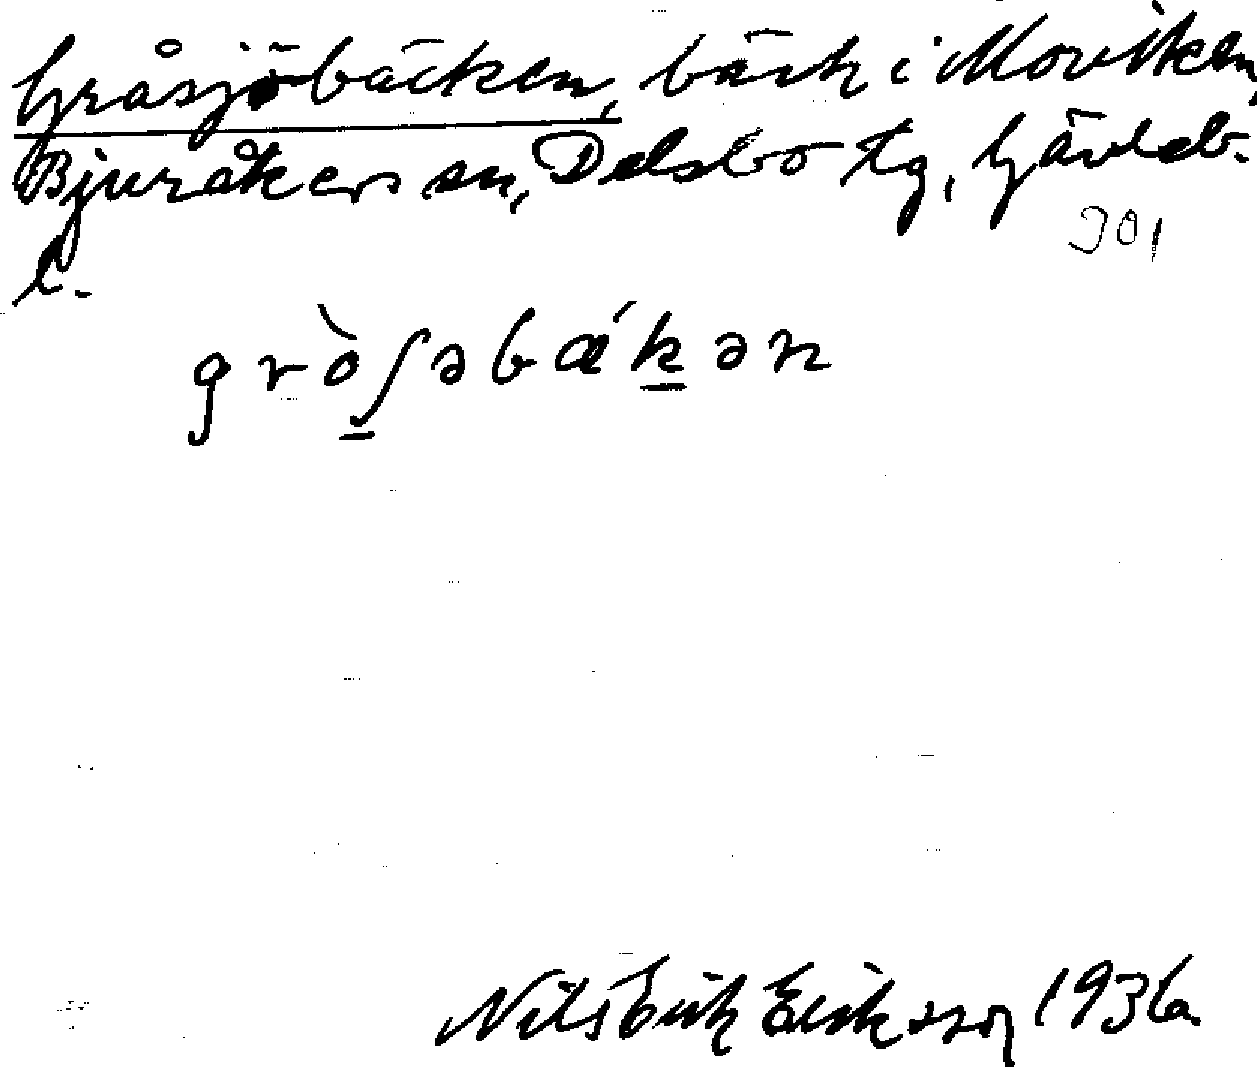 Gråsjöbäcken, bäck i Moviken,
Bjuråkers sn, Delsbo tg, Gävleb.
l.
301
gròʃəbǽkən
Nils Erik Eriksson 1936.